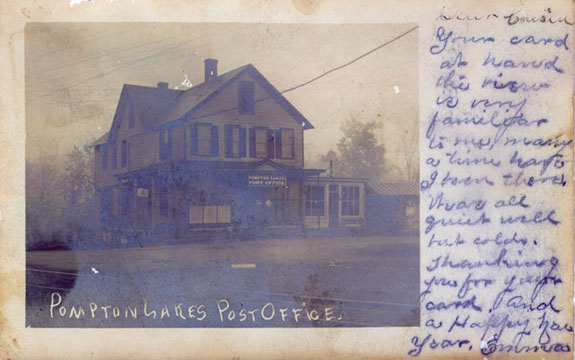 POMPTON LAKES
POST OFFICE
POMPTON LAKES POST OFFICE.
Dear Cousin
Your card
at hand
the view
is very
familiar
to me, many
a time have
I been there,
We are all
quiet well
but colds.
Thanking
you for your
card. And
a Happy New
Year, Emma